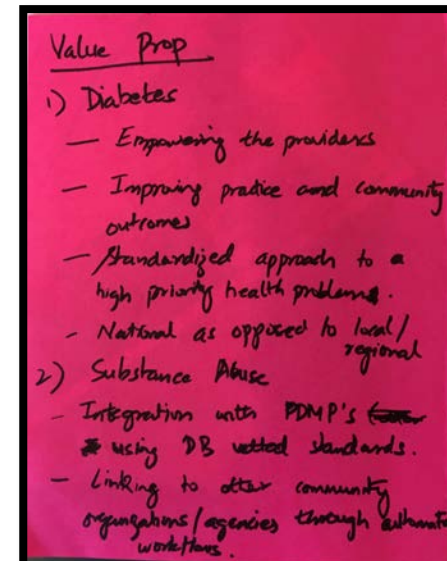 Value Prop
1) Diabetes
— Empowering the providers
— Improving practice and community
outcomes
— Standardized approach to a
high priority health problem.
- National as opposed to local/
regional
2) Substance Abuse
- Integration with PDMP's
using DB vetted standards.
- Linking to other community
organizations/agencies through
workflows.